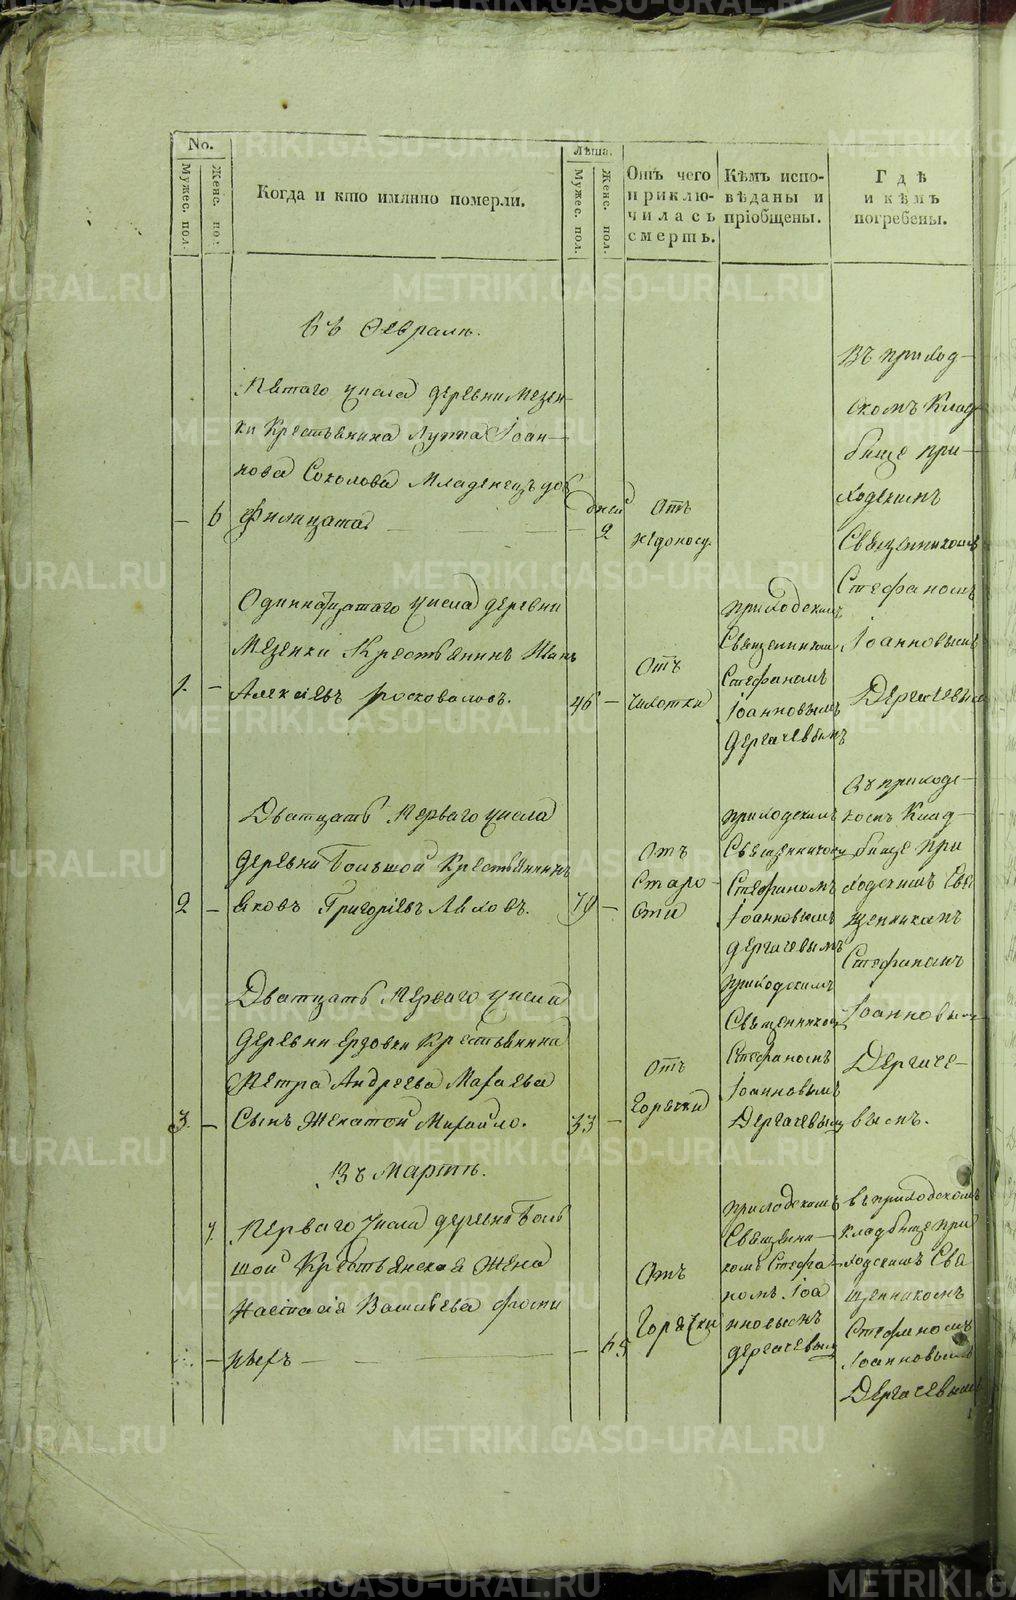 No.
Мужес. пол.
Женс. пол.
Когда и кто имянно померли.
Лѣта.
Мужес. пол.
Женс. пол.
Отъ чего
приклю-
чилась
смерть.
Кѣмъ испо-
вѣданы и
прiобщены.
Гдѣ
и кѣмъ
погребены.
Въ Февралѣ.
Пятаго числа деревни Мезен-
ки Крестьянина Луппа Iоан-
нова Соколова Младенецъ дочь
6 Филицата
дней
2
Отъ
недоносу
Въ приход-
скомъ Клад-
бище при-
ходскимъ
Священникомъ
Стефаномъ
Iоанновымъ
Дергачевымъ
Одиннатцатаго числа деревни
Мезенки Крестьянинъ Иванъ
1. Алексѣевъ
46
Отъ
чахотки
приходскимъ
Священникомъ
Стефаномъ
Iоанновымъ
Дергачевымъ
Дватцать Перваго числа
деревни Большой Крестьянинъ
2 Яковъ Григорiевъ
70
Отъ
Старо-
сти
приходскимъ
Священникомъ
Стефаномъ
Iоанновымъ
Дергачевымъ
Въ приходс-
комъ Клад-
бище при
ходскимъ Свя
щенникомъ
Стефаномъ
Iоанновымъ
Дергаче-
вымъ.
Дватцать Перваго числа
деревни Ерзовки Крестьянина
Петра Андреева
3. Сынъ Женатой Михайло.
33
Отъ
Горячки
приходскимъ
Священникомъ
Стефаномъ
Iоанновымъ
Дергачевымъ
Въ Мартѣ.
7. Перваго Числа деревни Боль
шой Крестьянская Жена
Настасiя Васильева
65
Отъ
Горячки
приходскимъ
Священни-
комъ Стефа-
номъ Iоа
нновымъ
Дергачевымъ
въ приходскомъ
кладбище при
ходскимъ Свя
щенникомъ
Стефаномъ
Iоанновымъ
Дергачевымъ
METRIKI.GASO-URAL.RU